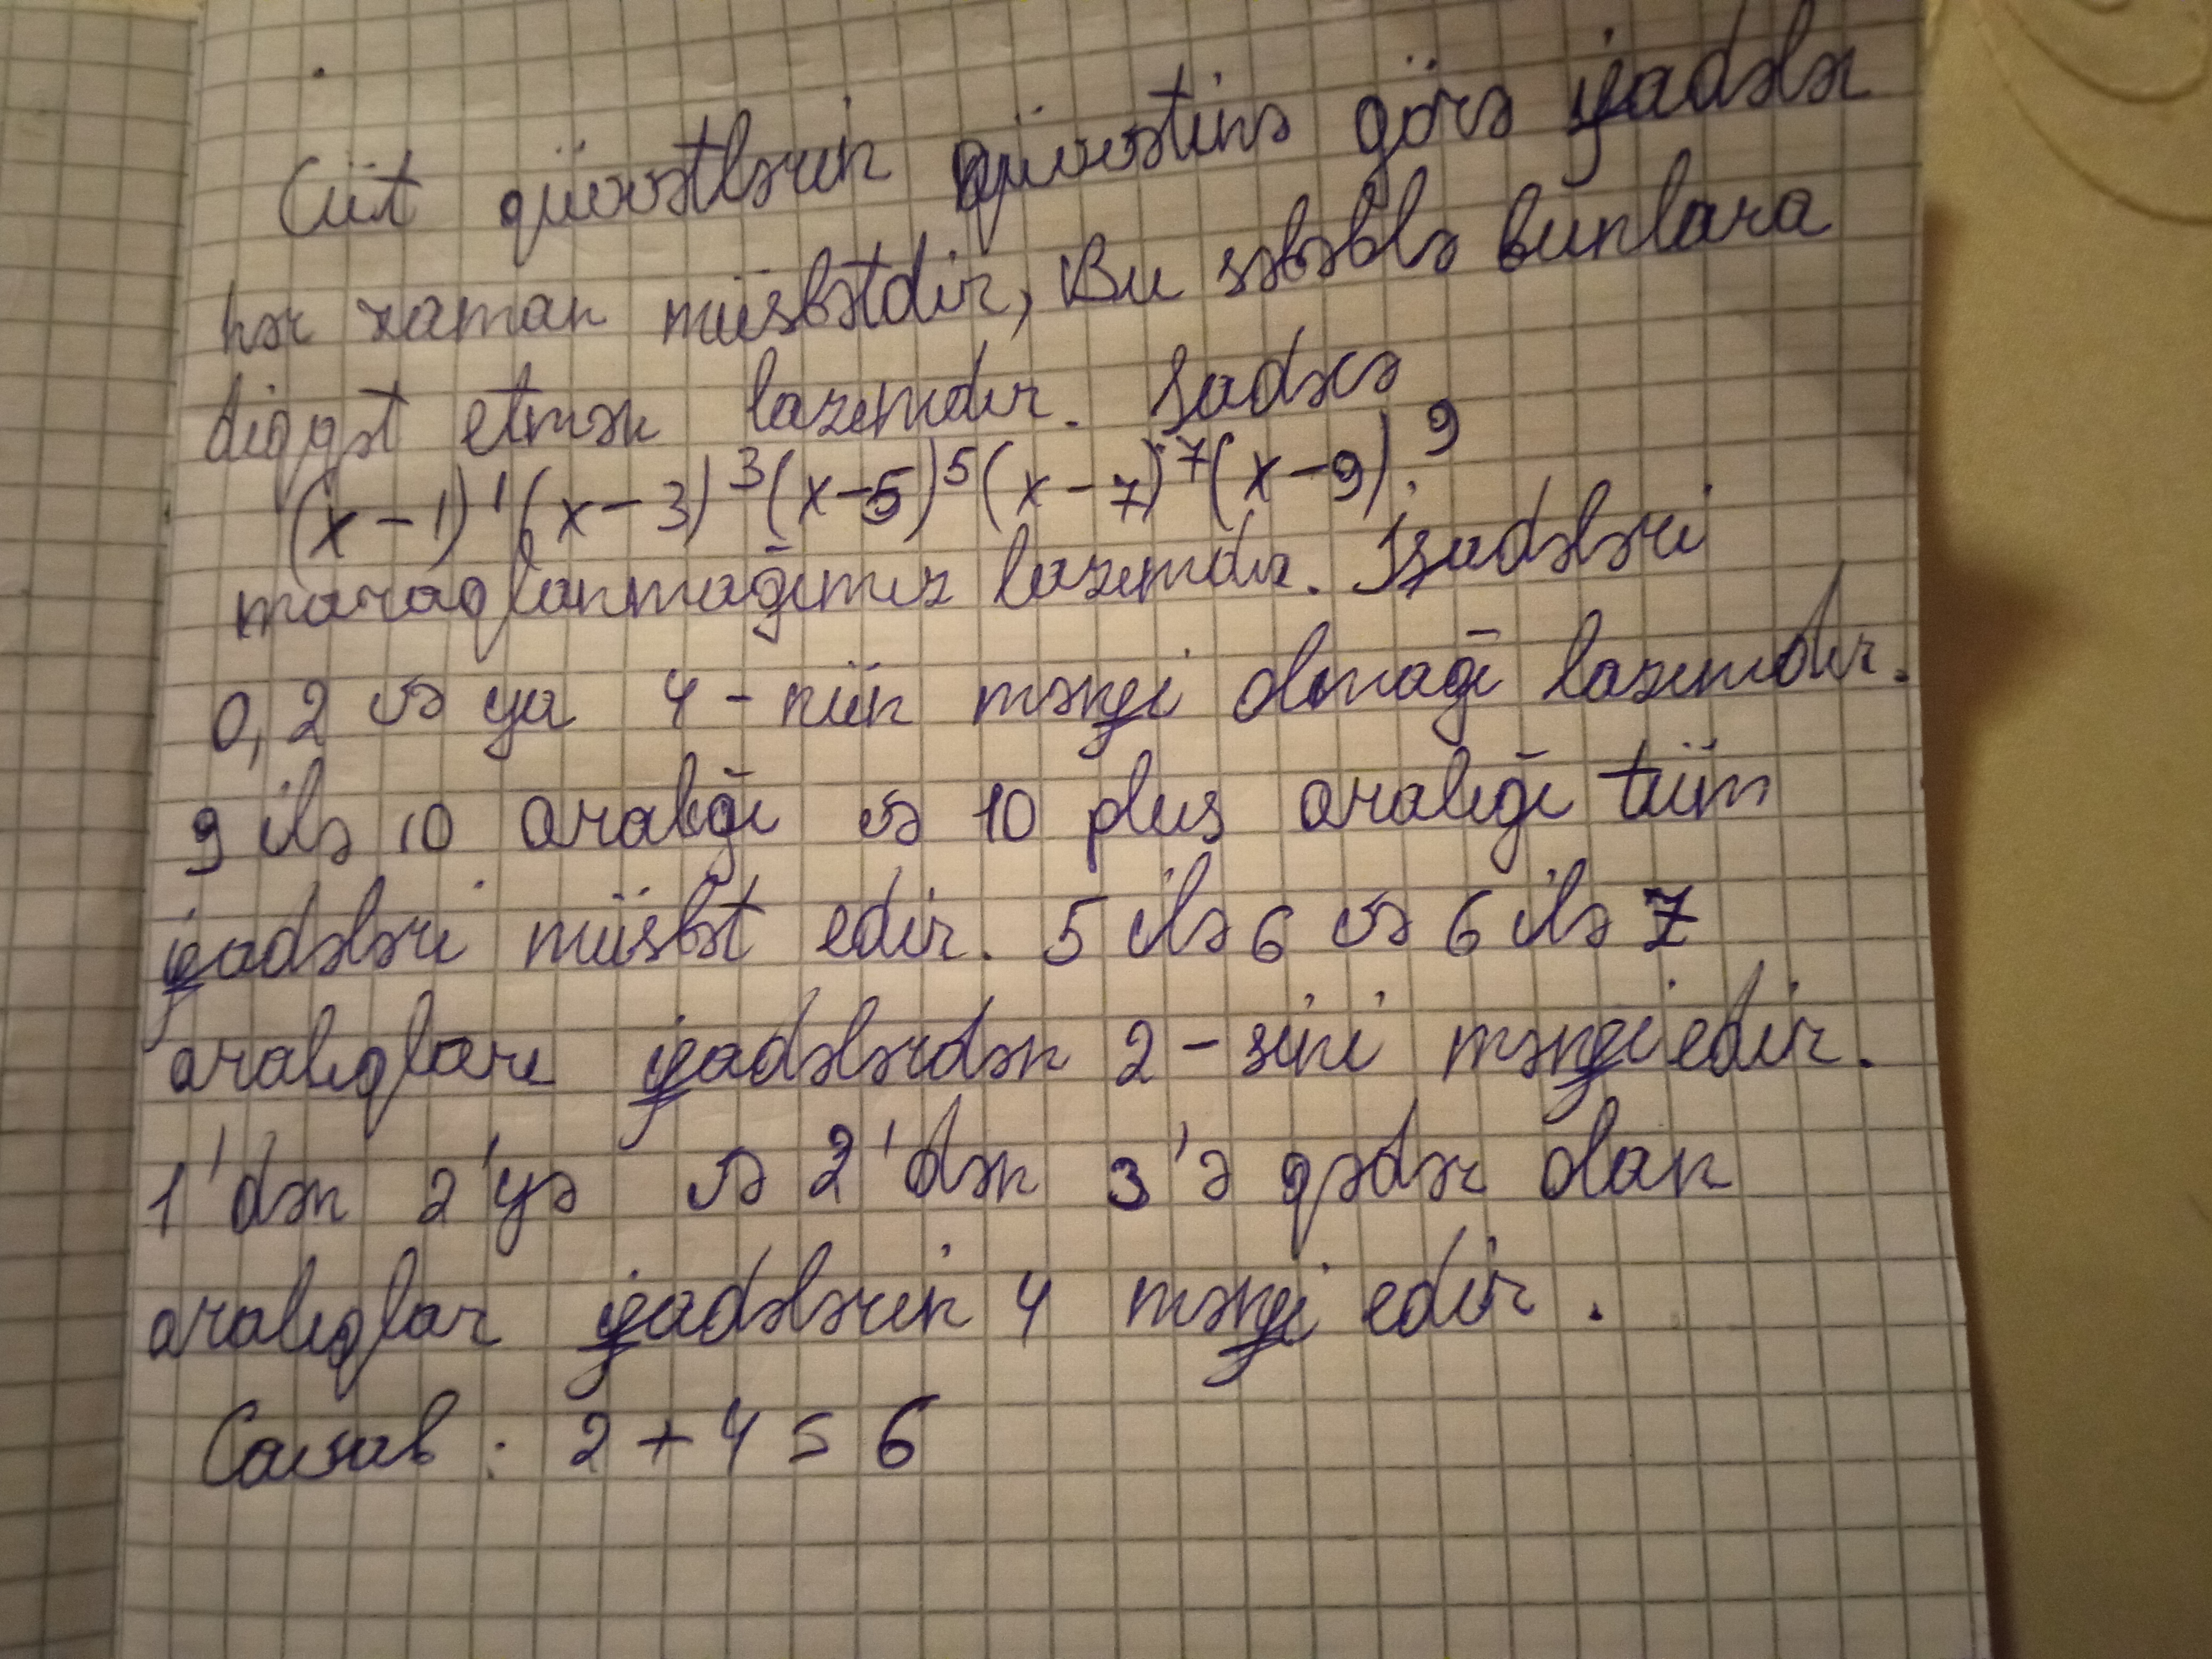 Cüt qüvvətlərin qüvvətinə görə ifadələr
hər zaman müsbətdir, Bu səbəblə bunlara
diqqət etmək lazımdır. Sadəcə
(x-1)¹(x-3)³(x-5)⁵(x-7)⁷(x-9)⁹
maraqlanmağımız lazımdır. İfadələri
0, 2 və ya 4-nün mənfi olmağı lazımdır.
9 ilə 10 aralığı və 10 plus aralığı tüm
ifadələri müsbət edir. 5 ilə 6 və 6 ilə 7
aralıqları ifadələrdən 2-sini mənfi edir.
1'dən 2'yə və 2'dən 3'ə qədər olan
aralıqlar ifadələrin 4 mənfi edir.
Cavab: 2+4=6